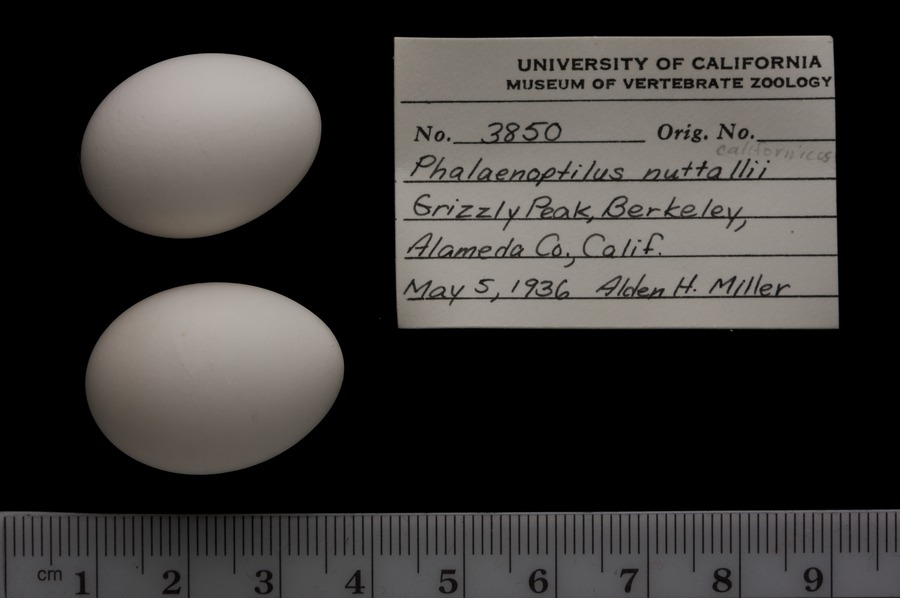 UNIVERSITY OF CALIFORNIA
MUSEUM OF VERTEBRATE ZOOLOGY
No. 3850 Orig. No.
californicus
Phalaenoptilus nuttallii
Grizzly Peak, Berkeley,
Alameda Co., Calif.
May 5, 1936 Alden H. Miller
cm 1 2 3 4 5 6 7 8 9